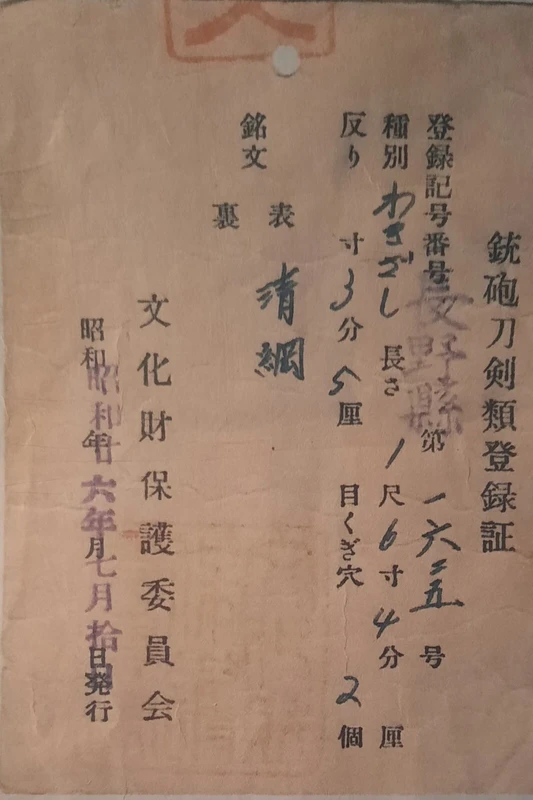 銃砲刀剣類登録証
登録記号番号 長野縣 第一六二五号
種別 わきざし 長さ 1尺6寸4分 厘
反り 寸3分5厘 目くぎ穴 2個
銘文 表 清綱
裏
文化財保護委員会
昭和 年 月 日発行
昭和廿六年七月拾日